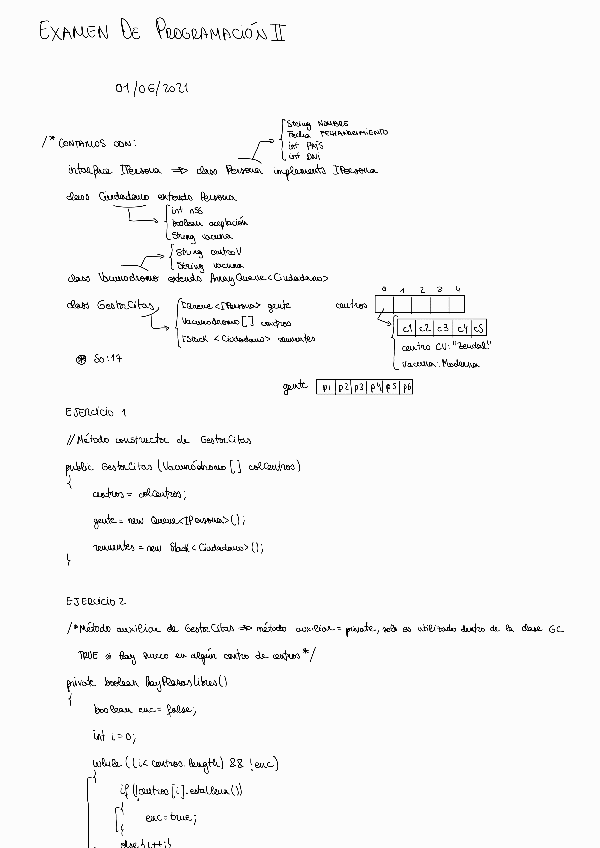 EXAMEN DE PROGRAMACIÓN II
01/06/2021
/* CONTAMOS CON:
String NOMBRE
Fecha FECHANACIMIENTO
int PAÍS
int DNI
interface IPersona => class Persona implements IPersona
class Ciudadano extends Persona
int nSS
boolean aceptación
String vacuna
String centroV
String vacuna
class Vacunodromo extends ArrayQueue<Ciudadano>
class GestorCitas
IQueue<IPersona> gente
Vacunodromo[] centros
IStack <Ciudadano> renuentes
centros
0 1 2 3 4
c1 c2 c3 c4 c5
centro CV: "Zendal"
Vacuna: Moderna
50:17
gente p1 p2 p3 p4 p5 p6
EJERCICIO 1
//Método constructor de GestorCitas
public GestorCitas (Vacunódromo[] colCentros)
{
centros = colCentros;
gente = new Queue<IPersona>();
renuentes = new Stack<Ciudadano>();
}
EJERCICIO 2
/*Método auxiliar de GestorCitas => método auxiliar = private, solo es utilizado dentro de la clase GC
TRUE si hay hueco en algún centro de centros*/
private boolean hayPlazasLibres()
{
boolean enc = false;
int i = 0;
while ((i < centros.length) && !enc)
{
if (!centros[i].estallena())
{
enc = true;
}
else {i++;}